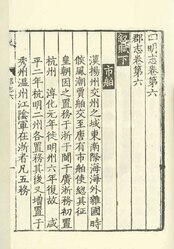 明志卷第六
郡志卷第六
敘賦下
市舶
漢揚州交州之域東南際海海外雜國時
候風潮賈舶交至唐有市舶使總其征
皇朝因之置務于浙于閩于廣浙務初置
杭州淳化元年徙明州六年復故咸
平二年杭明二州各置務其後又增置于
秀州溫州江陰軍在浙者凡五務